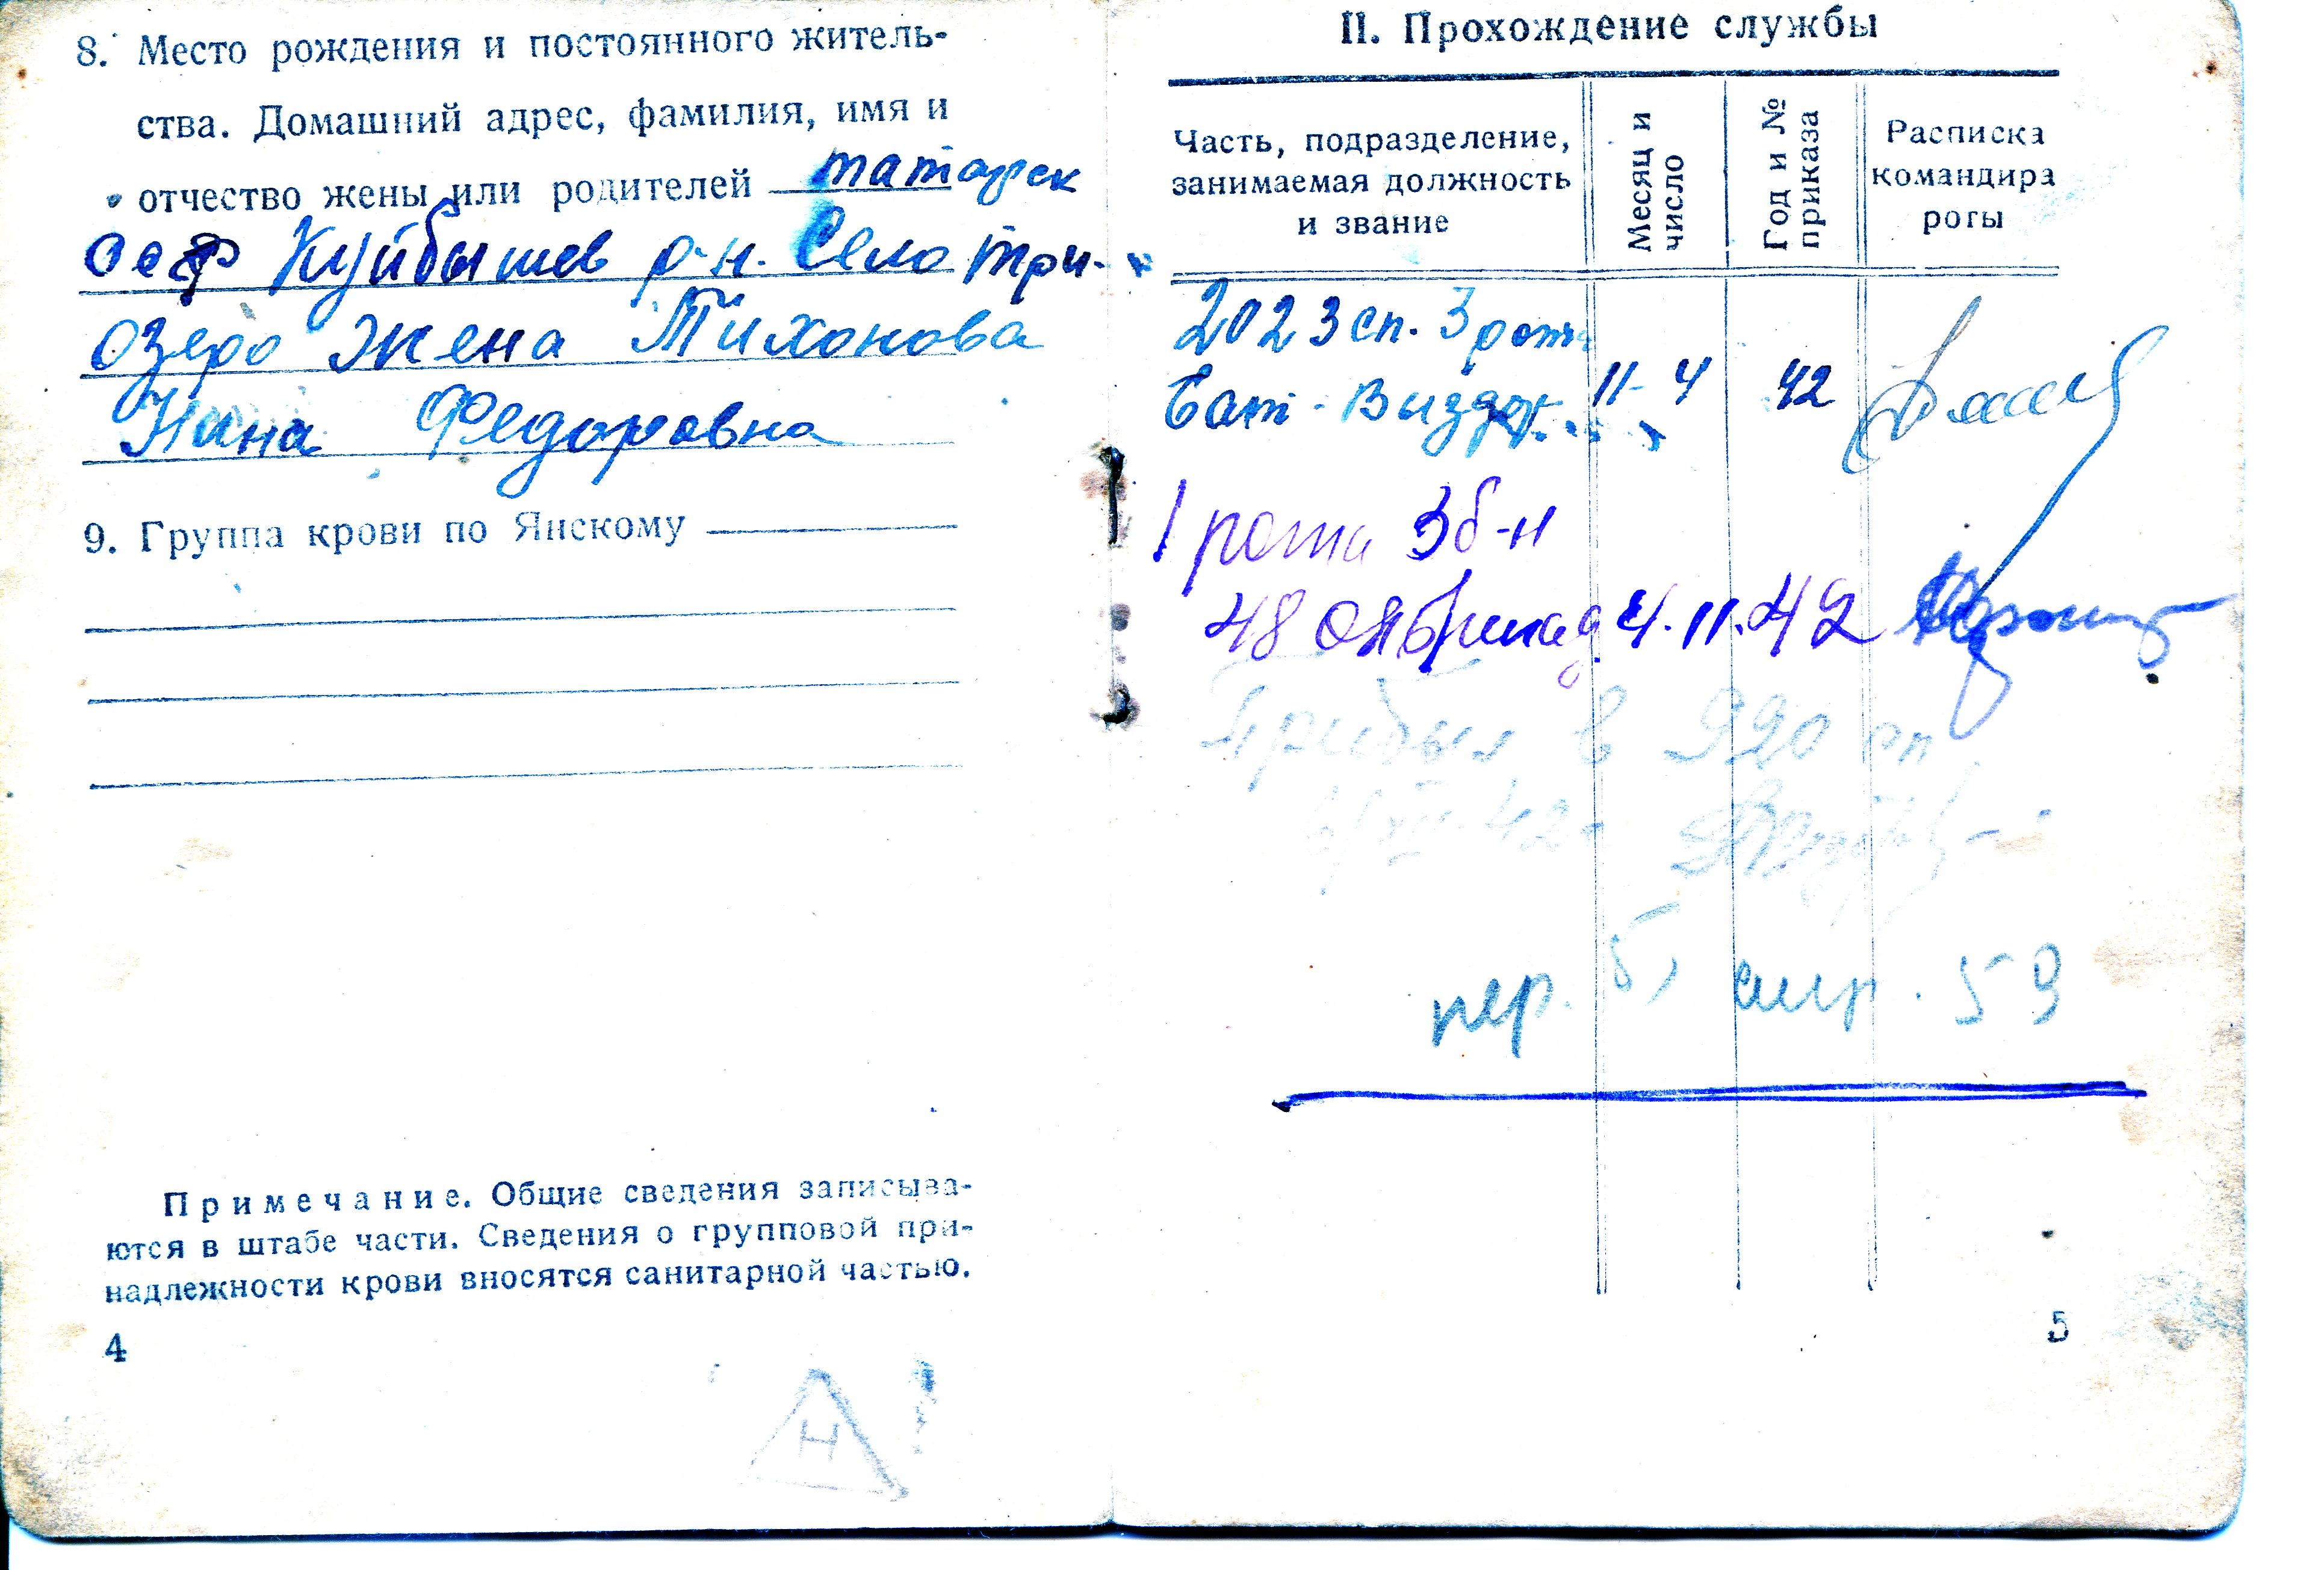 8. Место рождения и постоянного житель-
ства. Домашний адрес, фамилия, имя и
отчество жены или родителей татарск
сср Куйбышев р-н. Село три-
озеро жена Тихонова
Нина Федоровна
9. Группа крови по Янскому
Примечание. Общие сведения записыва-
ются в штабе части. Сведения о групповой при-
надлежности крови вносятся санитарной частью.
4
Н
II. Прохождение службы
Часть, подразделение,
занимаемая должность
и звание
Месяц и
число
Год и №
приказа
Расписка
командира
роты
202 3 сп. 3 рота
11 - 4 42
1 рота 3 б-н
48 4.11.42
Прибыл в 990 сп
42г
пер. 5, стр. 59
5